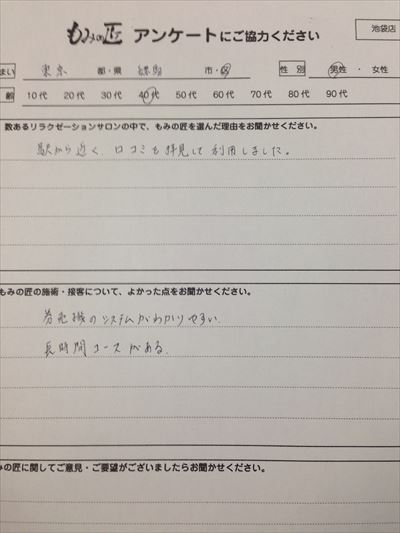 もみの匠 アンケートにご協力ください
池袋店
まい 東京 都・県 練馬 市・区 性 別 男性 ・ 女性
齢 10代 20代 30代 40代 50代 60代 70代 80代 90代
数あるリラクゼーションサロンの中で、もみの匠を選んだ理由をお聞かせください。
駅から近く、口コミを拝見して利用しました。
もみの匠の施術・接客について、よかった点をお聞かせください。
券売機のシステムがわかりやすい。
長時間コースがある。
みの匠に関してご意見・ご要望がございましたらお聞かせください。